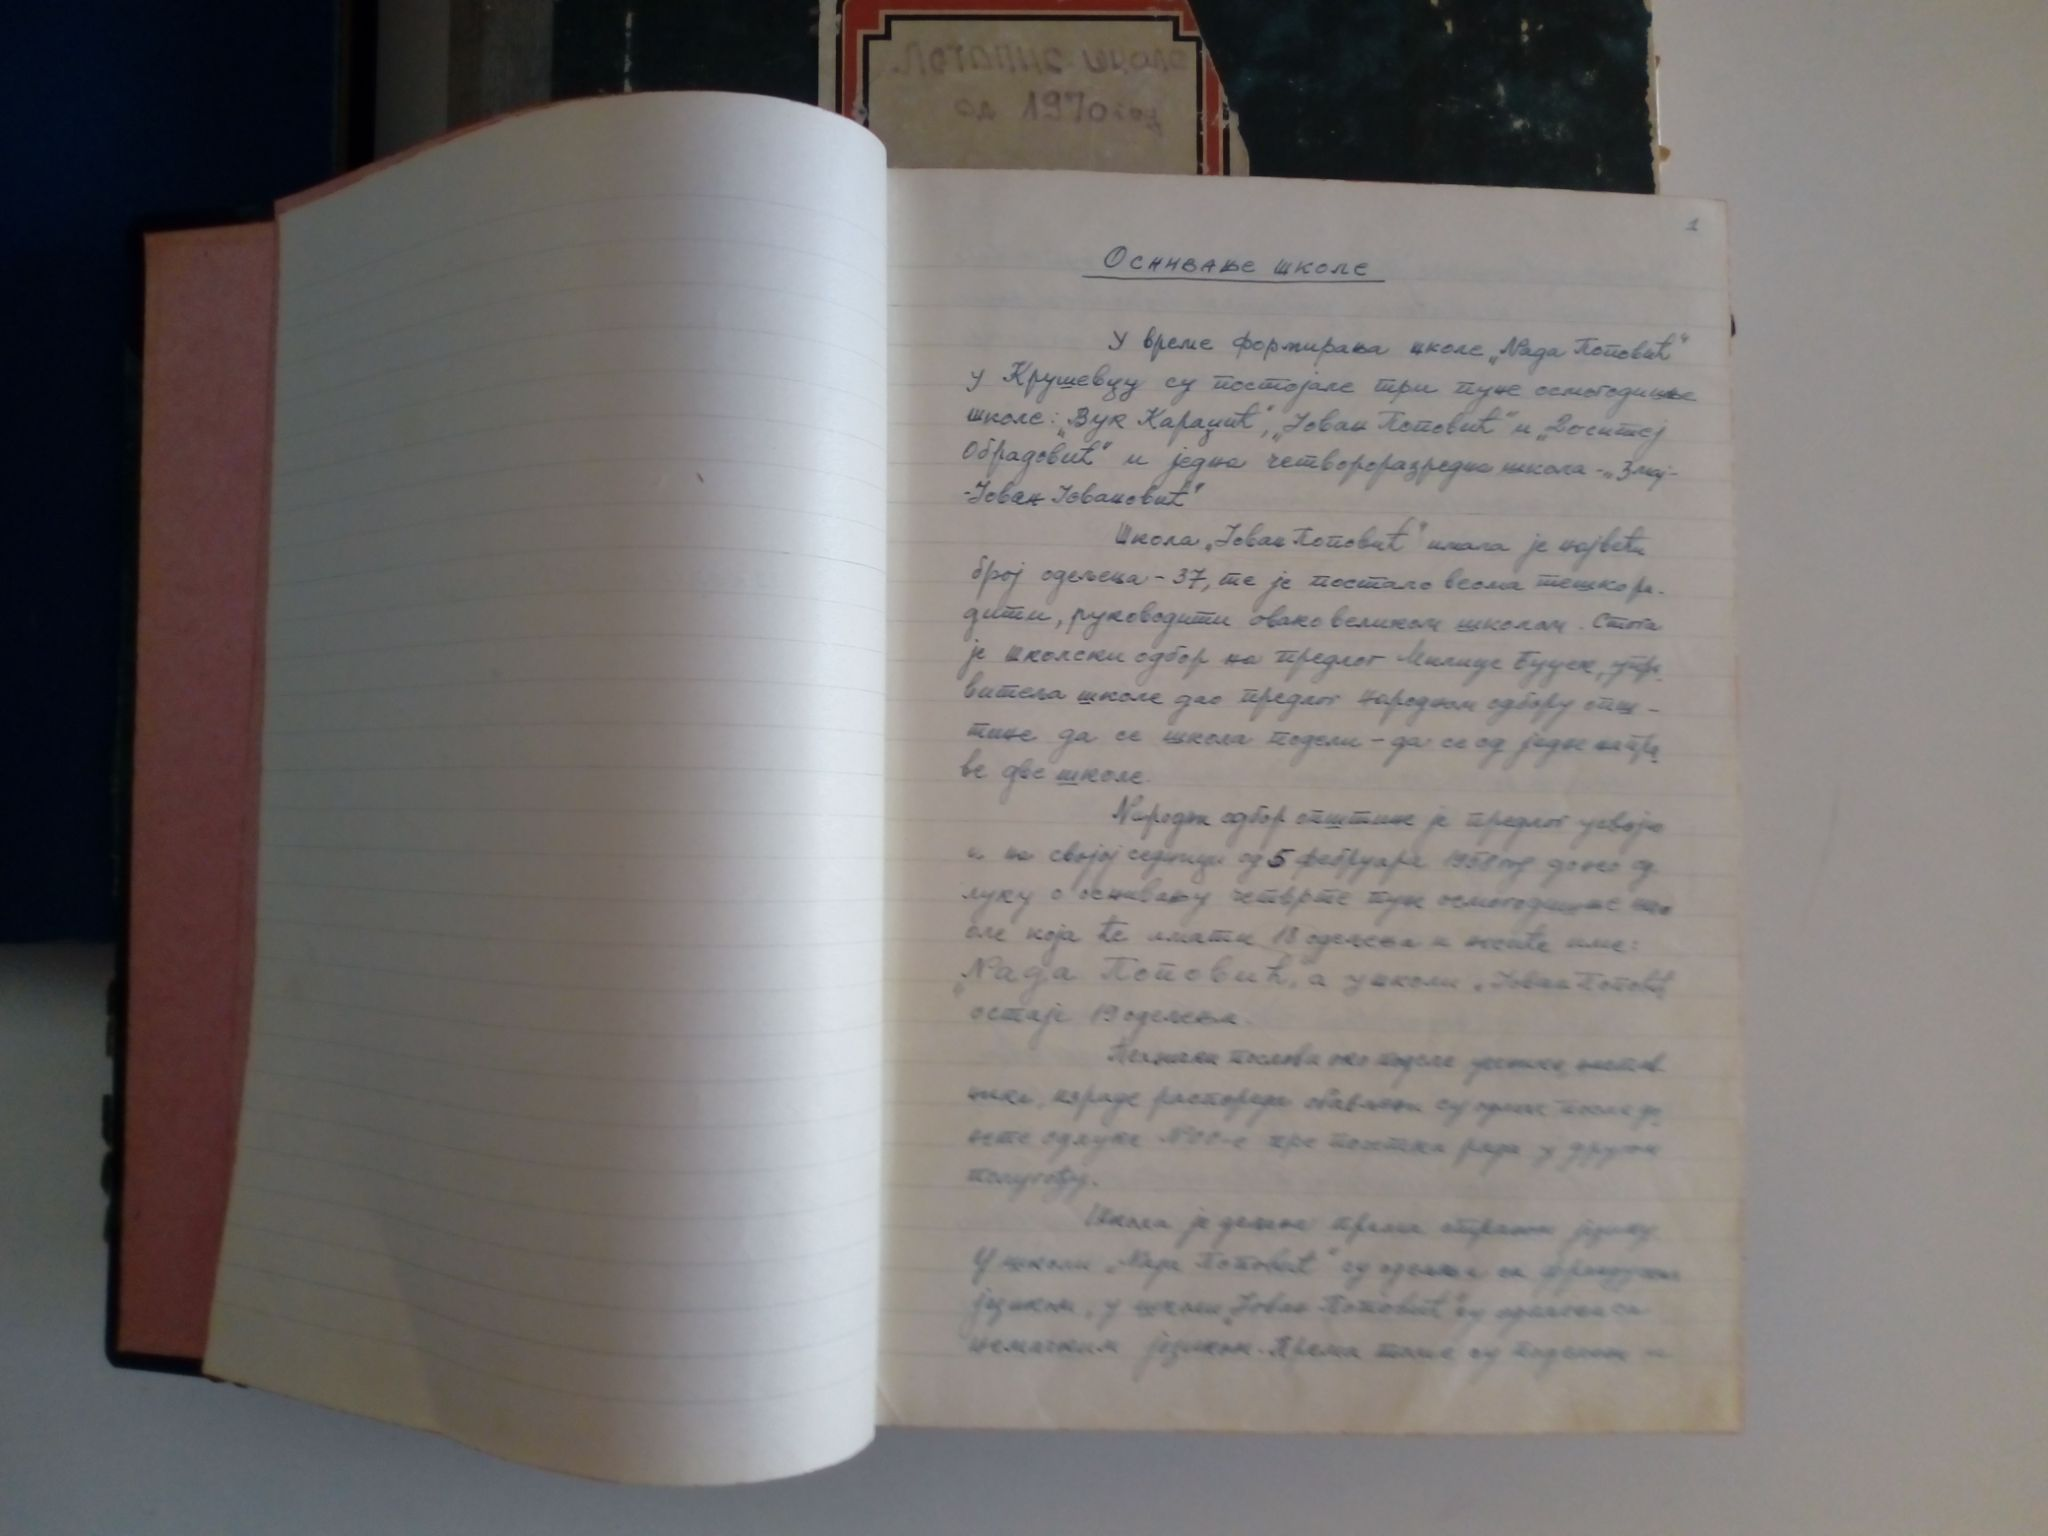 Летопис школе
од 1970 год
1
Оснивање школе
У време формирања школе „Нада Поповић“
у Крушевцу су постојале три пуне осмогодишње
школе: „Вук Караџић“, „Јован Поповић“ и „Доситеј
Обрадовић“ и једна четвороразредна школа - „Змај-
-Јован Јовановић“
Школа „Јован Поповић“ имала је највећи
број одељења - 37, те је постало веома тешко ра-
дити, руководити овако великом школом. Стога
је школски одбор на предлог Милице Буцек, упра-
витеља школе дао предлог Народном одбору опш-
тине да се школа подели - да се од једне напра
ве две школе.
Народни одбор општине је предлог усвојио
и на својој седници од 5 фебруара 1958 год донео од
луку о оснивању четврте пуне осмогодишње шко
ле која ће имати 18 одељења и носиће име:
„Нада Поповић“, а у школи „Јован Поповић
остаје 19 одељења.
послови око поделе ученика, настав
ника, израде распореда обављени су одмах после до
нете одлуке НОО-е пре почетка рада у другом
полугођу.
Школа је дељена према страном језику
У школи „Нада Поповић“ су одељења са француским
језиком, у школи „Јован Поповић“ су одељења са
немачким језиком. Према томе су подељени и